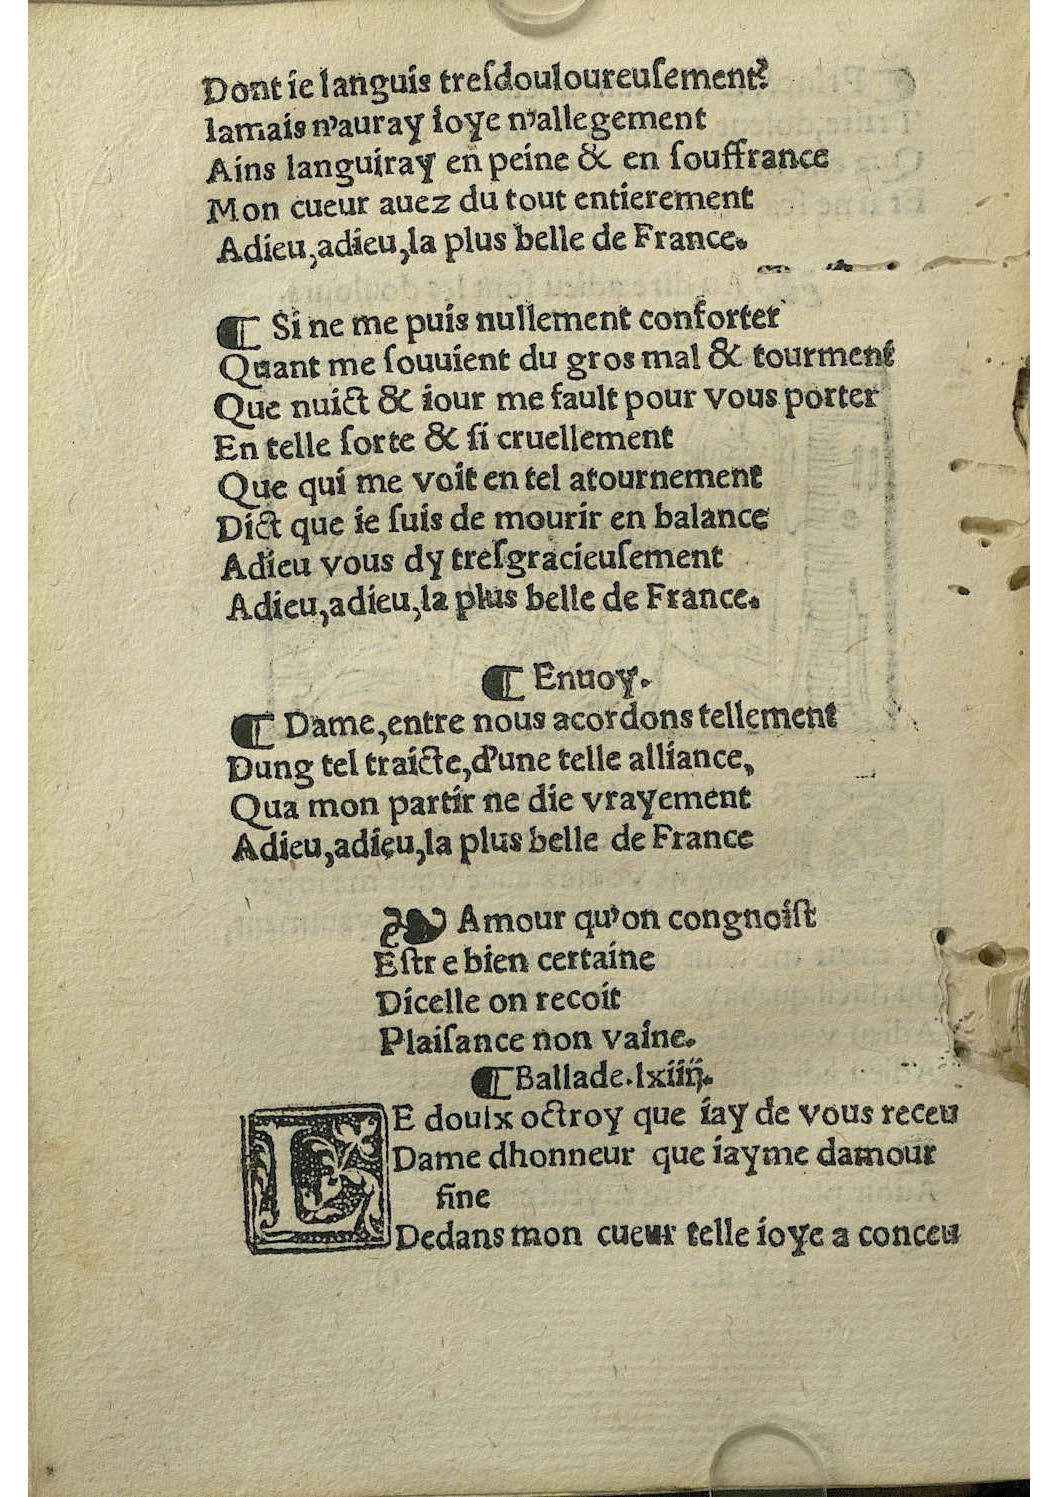 Dont ie languis treſdouloureuſement?
Iamais n'auray ioye n'allegement
Ains languiray en peine & en ſouffrance
Mon cueur auez du tout entierement
Adieu,adieu,la plus belle de France.
¶ Si ne me puis nullement conforter
Quant me ſouuient du gros mal & tourment
Que nuict & iour me fault pour vous porter
En telle ſorte & ſi cruellement
Que qui me voit en tel atournement
Dict que ie ſuis de mourir en balance
Adieu vous dy treſgracieuſement
Adieu,adieu,la plus belle de France.
¶ Enuoy.
¶ Dame,entre nous acordons tellement
Dung tel traicte,d'une telle alliance,
Qua mon partir ne die vrayement
Adieu,adieu,la plus belle de France
❧ Amour qu'on congnoiſt
Eſtre bien certaine
Dicelle on recoit
Plaiſance non vaine.
¶ Ballade.lxiiij.
LE doulx octroy que iay de vous receu
Dame dhonneur que iayme damour
fine
Dedans mon cueur telle ioye a conceu